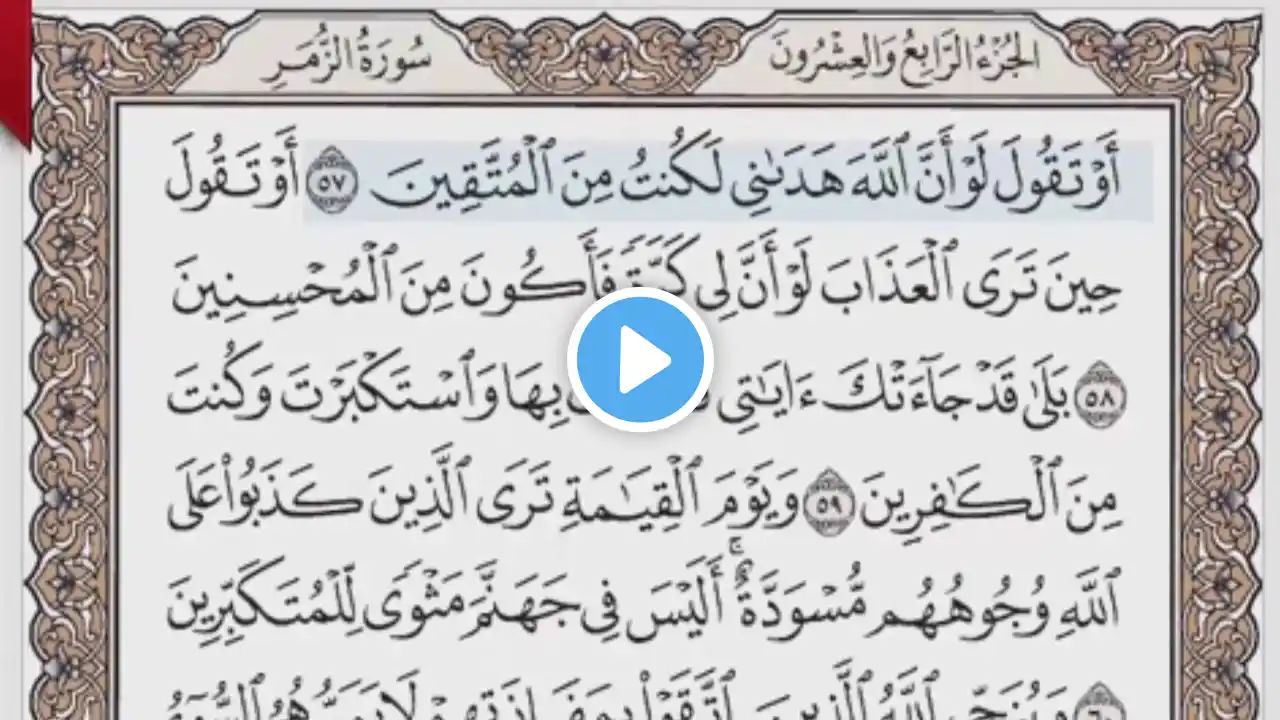 الجُزْءُ الرَّابِعُ وَالعِشْرُونَ سُورَةُ الزُّمَرِ
أَوْ تَقُولَ لَوْ أَنَّ ٱللَّهَ هَدَىٰنِى لَكُنتُ مِنَ ٱلْمُتَّقِينَ ٥٧ أَوْ تَقُولَ
حِينَ تَرَى ٱلْعَذَابَ لَوْ أَنَّ لِى كَرَّةً فَأَكُونَ مِنَ ٱلْمُحْسِنِينَ
٥٨ بَلَىٰ قَدْ جَآءَتْكَ ءَايَٰتِى بِهَا وَٱسْتَكْبَرْتَ وَكُنتَ
مِنَ ٱلْكَٰفِرِينَ ٥٩ وَيَوْمَ ٱلْقِيَٰمَةِ تَرَى ٱلَّذِينَ كَذَبُوا۟ عَلَى
ٱللَّهِ وُجُوهُهُم مُّسْوَدَّةٌ ۚ أَلَيْسَ فِى جَهَنَّمَ مَثْوًى لِّلْمُتَكَبِّرِينَ